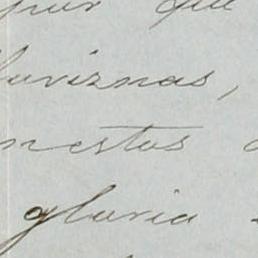 por que
lluviznas,
nestas
gloria